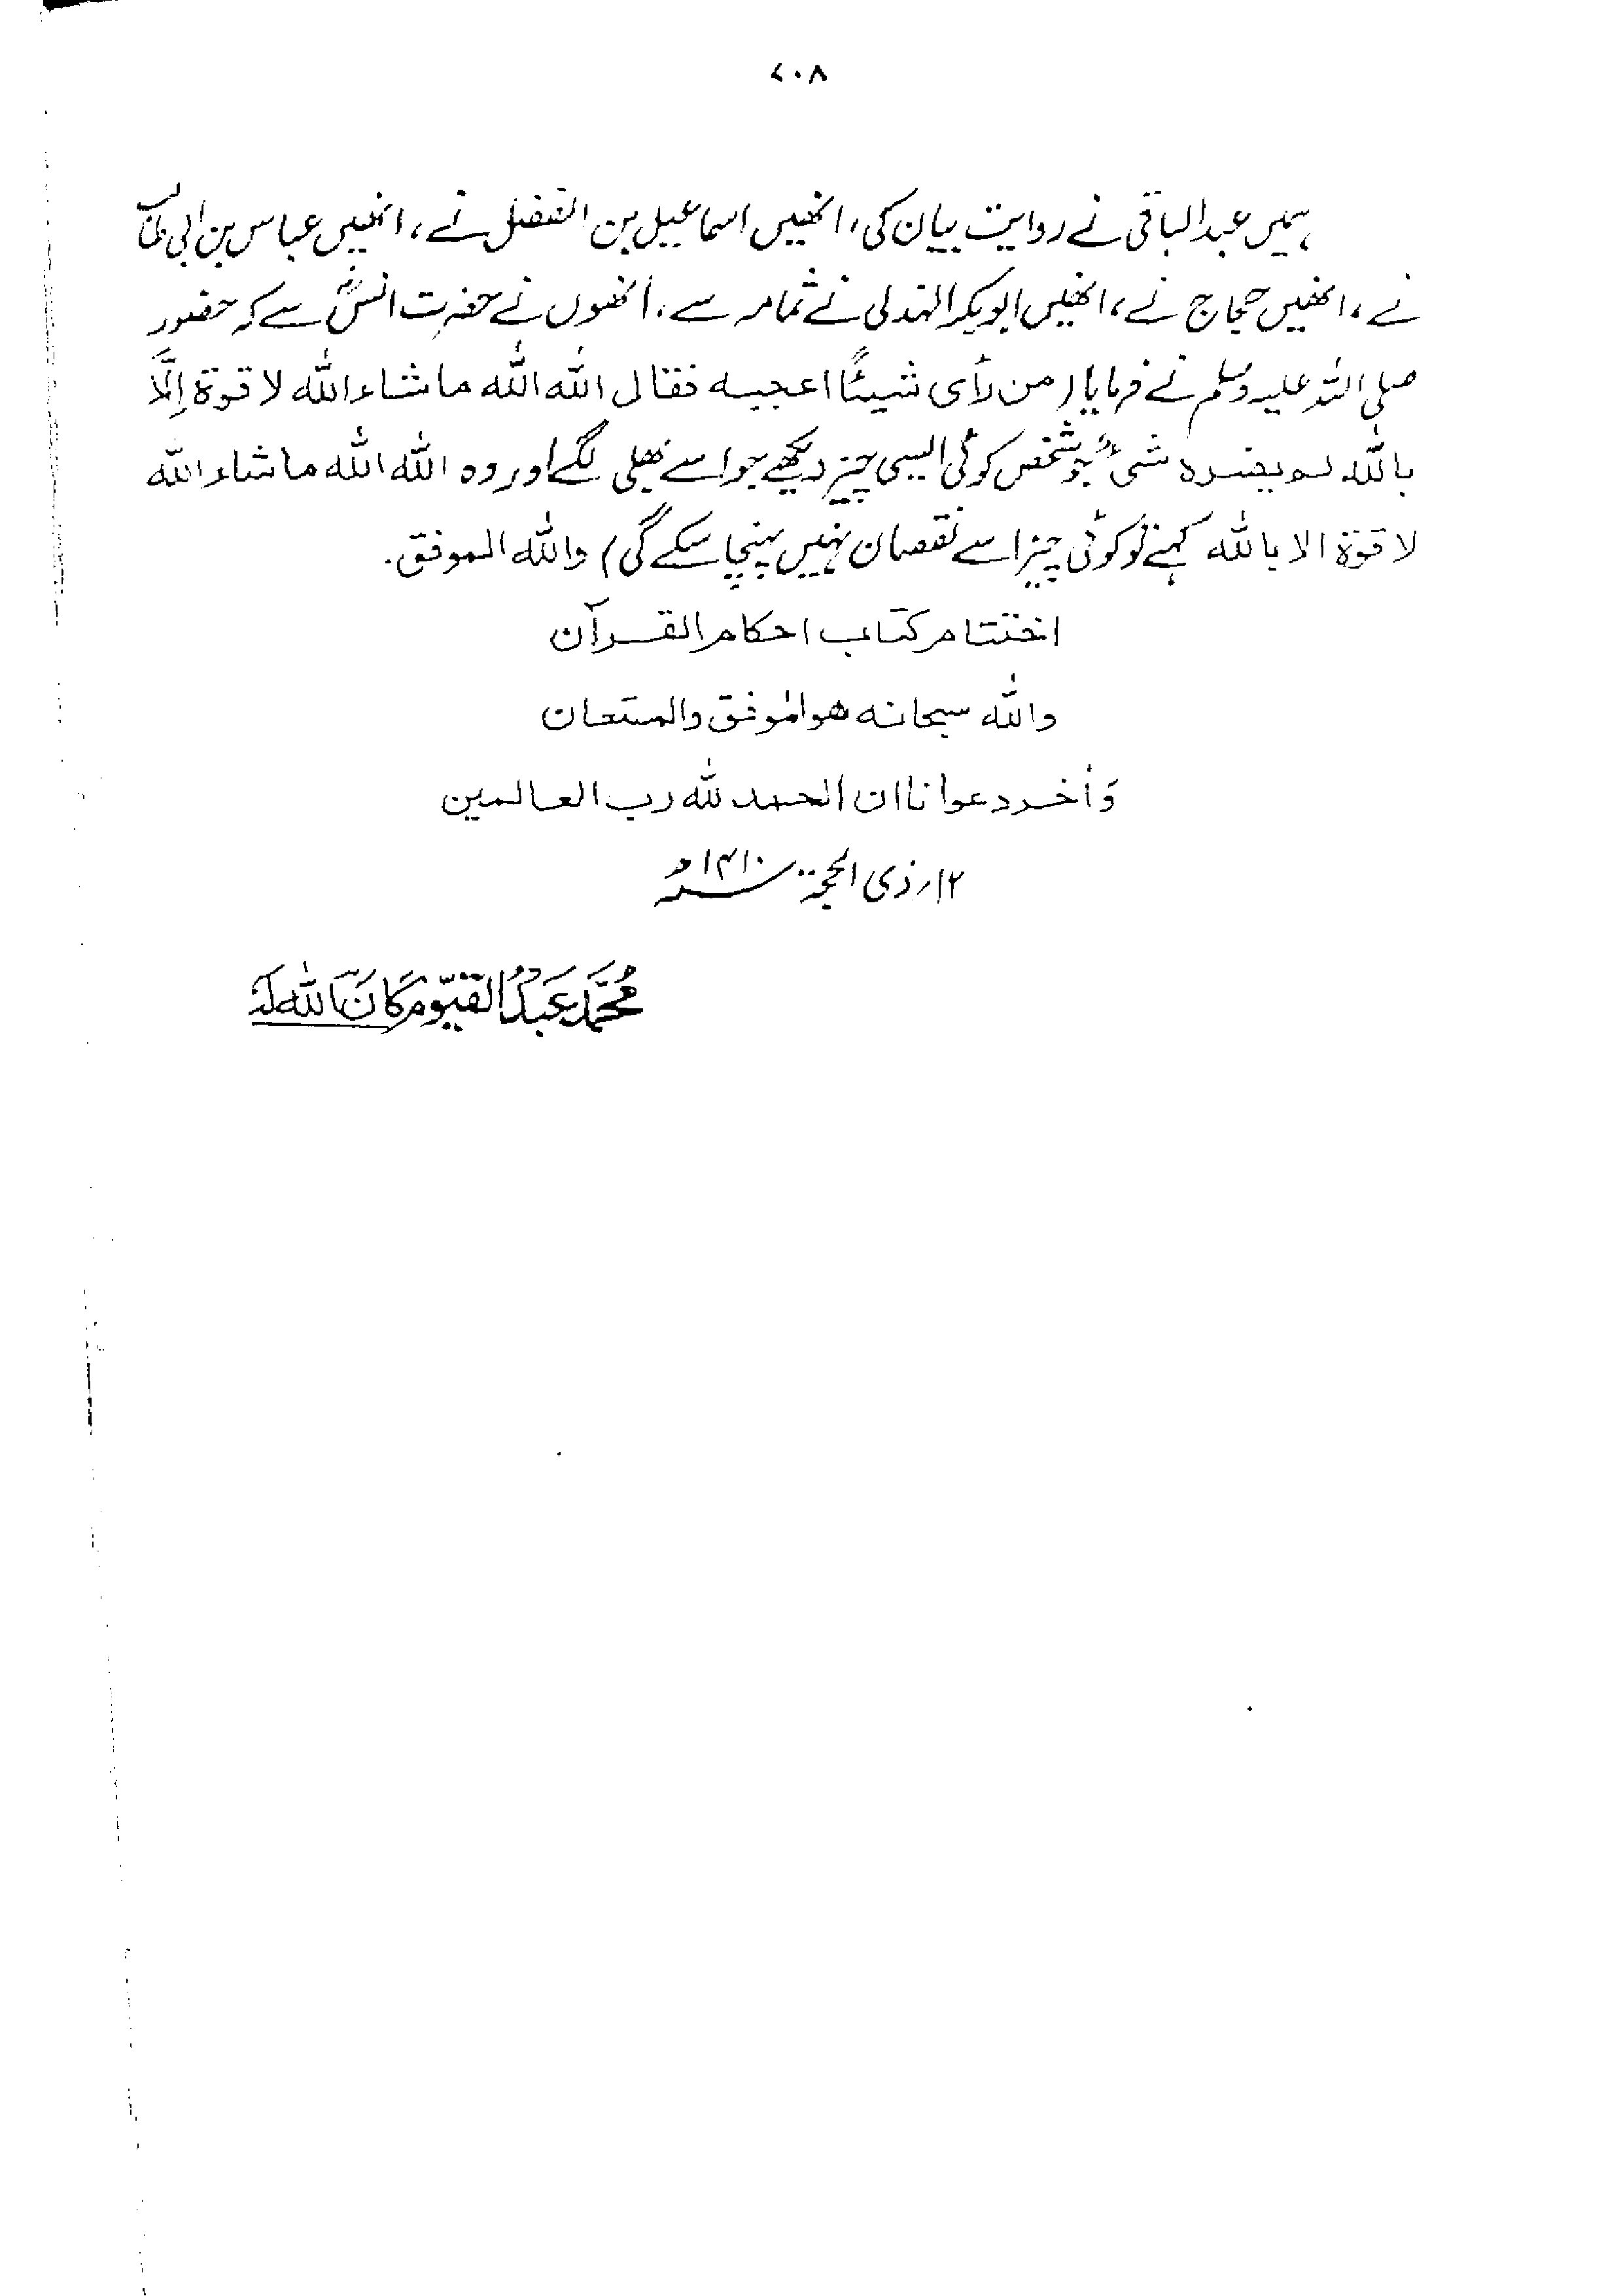 ۷۰۸
ہمیں عبدالباقی نے روایت بیان کی، انھیں اسماعیل بن الفضل نے، انھیں عباس بن ابی طالب
نے، انھیں حجاج نے، انھیں ابوبکر الہذلی نے ثمامہ سے، انھوں نے حضرت انسؓ سے کہ حضور
صلی اللہ علیہ وسلم نے فرمایا (من رأى شيئًا اعجبه فقال الله الله ما شاء الله لا قوة إلّا
بالله لم يضره شئ جو شخص کوئی ایسی چیز دیکھے جو اسے بھلی لگے اور وہ الله الله ما شاء الله
لا قوة الا بالله کہے تو کوئی چیز اسے نقصان نہیں پہنچا سکے گی) والله الموفق.
اختتام کتاب احکام القرآن
والله سبحانه هو الموفق والمستعان
وأخر دعوانا ان الحمد لله رب العالمين
۱۲؍ ذی الحجۃ ۱۴۱۰ھ
مُحَمَّد عَبدُ القیّوم کَانَ اللّٰہُ لَہٗ